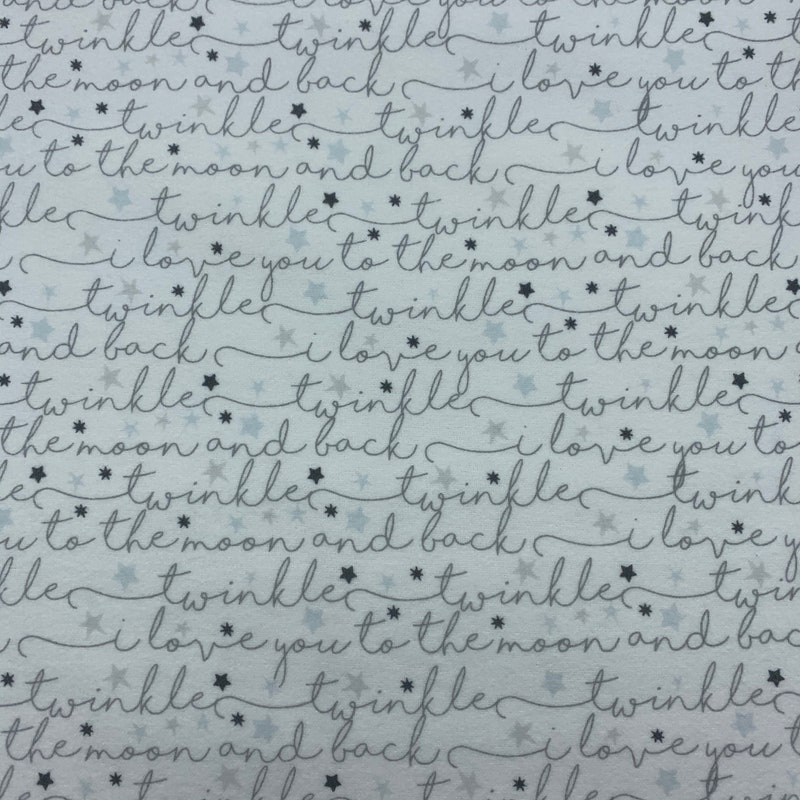 and back i love you to the moon
twinkle twinkle twinkle
the moon and back i love you to th
le twinkle twinkle twinkle
u to the moon and back i love you
kle twinkle twinkle twink
i love you to the moon and back
twinkle twinkle twinkle
and back i love you to the moon a
twinkle twinkle twinkle
the moon and back i love you to
le twinkle twinkle twink
u to the moon and back i love y
kle twinkle twinkle twin
i love you to the moon and bac
twinkle twinkle twinkle
the moon and back i love you t
le twinkle twinkle twink